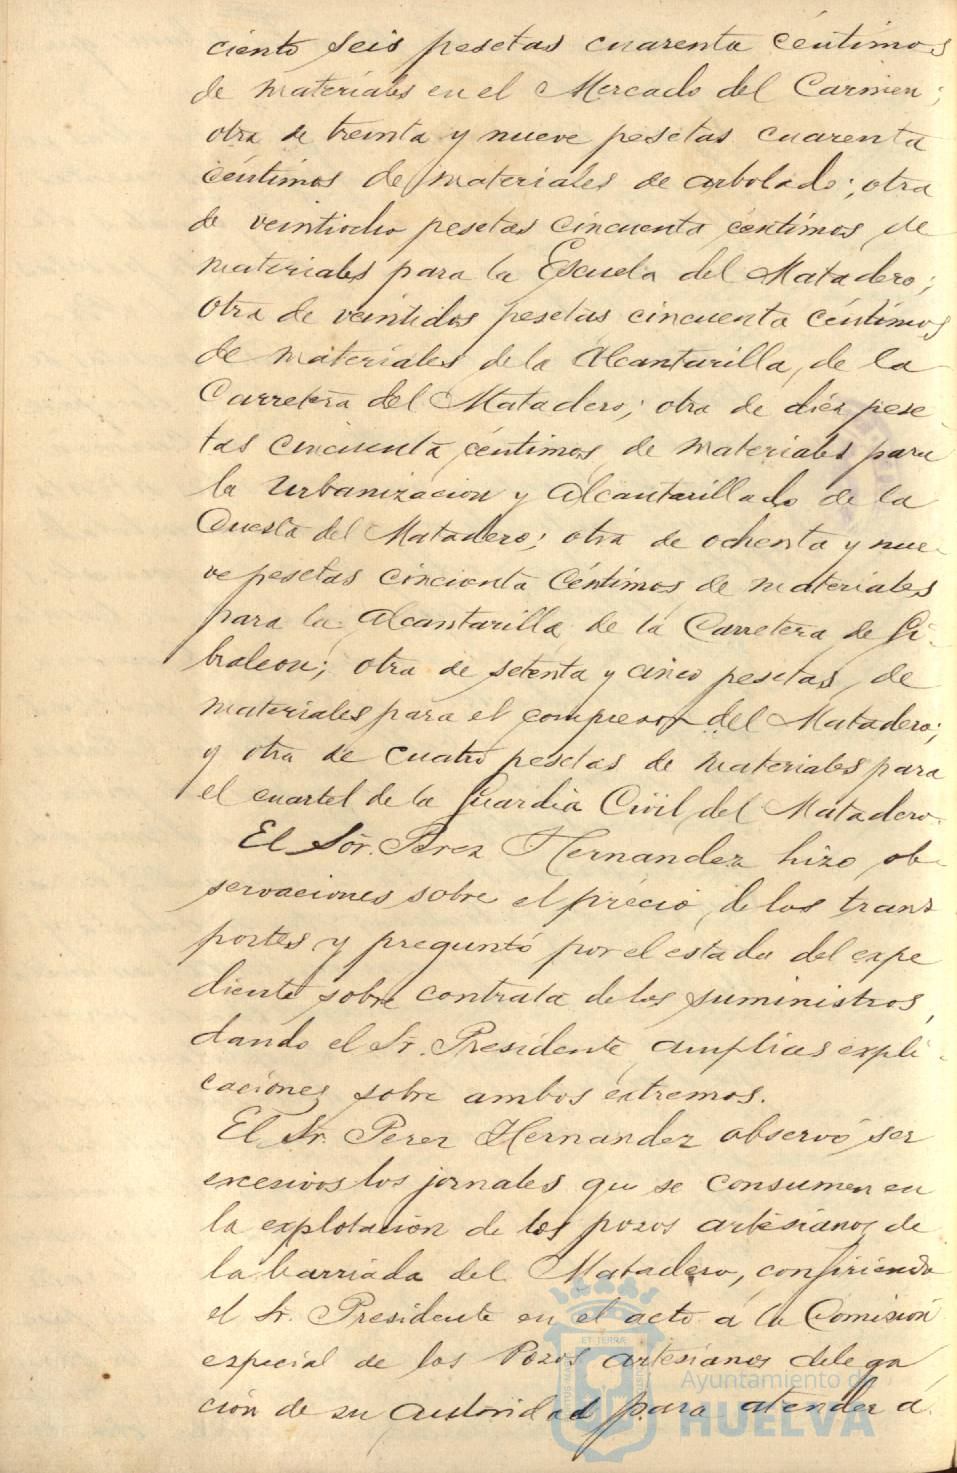 ciento seis pesetas cuarenta céntimos
de materiales en el Mercado del Carmen;
otra de treinta y nueve pesetas cuarenta
céntimos de materiales de arbolado; otra
de veintiocho pesetas cincuenta céntimos, de
materiales para la Escuela del Matadero;
otra de veintidos pesetas cincuenta céntimos
de materiales de la Alcantarilla, de la
Carretera del Matadero; otra de diez pese
tas cincuenta céntimos, de materiales para
la Urbanizacion y Alcantarillado de la
Cuesta del Matadero; otra de ochenta y nue-
ve pesetas cincienta céntimos de materiales
para la Alcantarilla de la Carretera de Gi-
braleon; otra de setenta y cinco pesetas, de
materiales para el compresor del Matadero;
y otra de cuatro pesetas de materiales para
el cuartel de la Guardia Civil del Matadero.
El Sor. Perez Hernandez hizo ob-
servaciones sobre el précio, de los trans
portes, y preguntó por el estado del expe
diente sobre contrata de los suministros,
dando el Sr. Presidente, amplias expli-
caciones sobre ambos extremos.
El Sr. Perez Hernandez observó ser
excesivos los jornales que se consumen en
la explotación de los pozos artesianos de
la barriada del Matadero, confiriendo
el Sr. Presidente en el acto á la Comisión
especial de los Pozos artesianos delega
ción de su autoridad para atender á
Ayuntamiento de
HUELVA